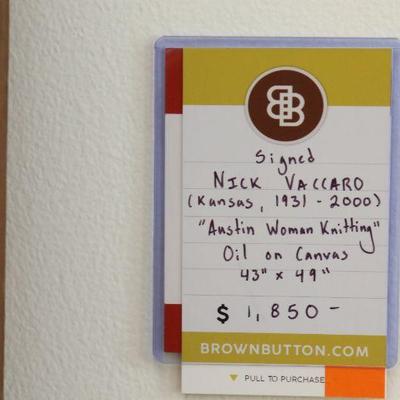 BB
Signed
NICK VACCARO
(Kansas, 1931 - 2000)
"Austin Woman Knitting"
Oil on Canvas
43" x 49"
$ 1,850 -
BROWNBUTTON.COM
PULL TO PURCHASE